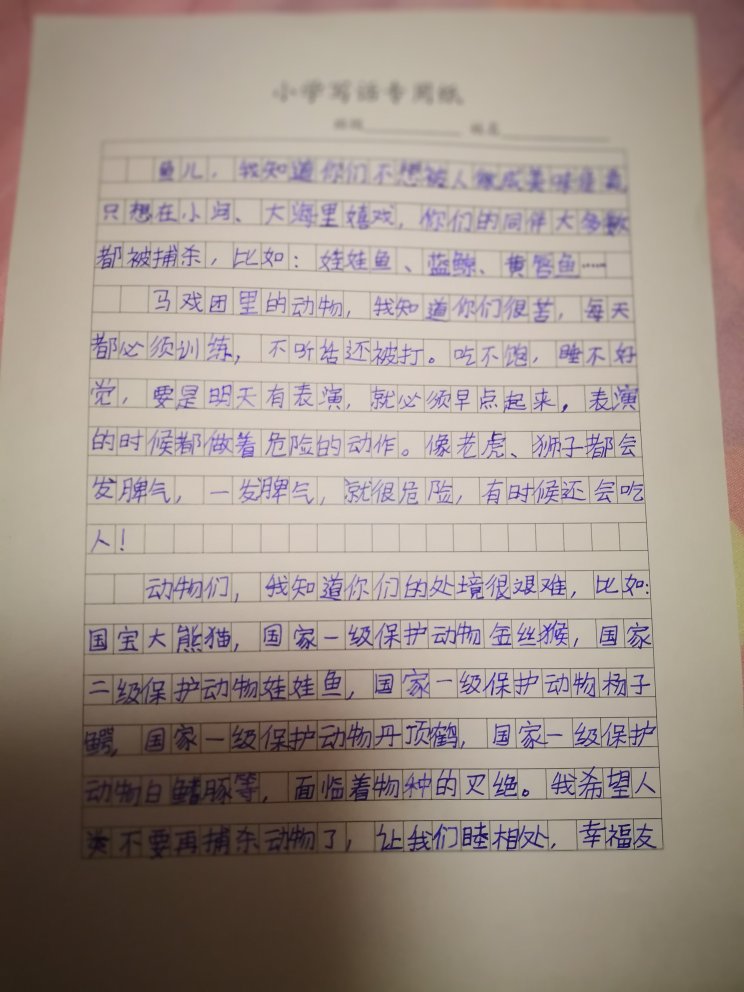 小学写话专用纸
班级 姓名
鱼儿，我知道你们不想被人做成美味佳肴，
只想在小河、大海里嬉戏，你们的同伴大多数
都被捕杀，比如：娃娃鱼、蓝鲸、黄唇鱼……
马戏团里的动物，我知道你们很苦，每天
都必须训练，不听话还被打。吃不饱，睡不好
觉，要是明天有表演，就必须早点起来，表演
的时候都做着危险的动作。像老虎、狮子都会
发脾气，一发脾气，就很危险，有时候还会吃
人！
动物们，我知道你们的处境很艰难，比如：
国宝大熊猫，国家一级保护动物金丝猴，国家
二级保护动物娃娃鱼，国家一级保护动物杨子
鳄，国家一级保护动物丹顶鹤，国家一级保护
动物白鳍豚等，面临着物种的灭绝。我希望人
类不要再捕杀动物了，让我们睦相处，幸福友